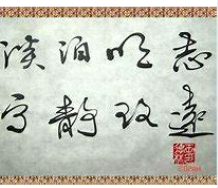 淡泊明志
宁静致遠